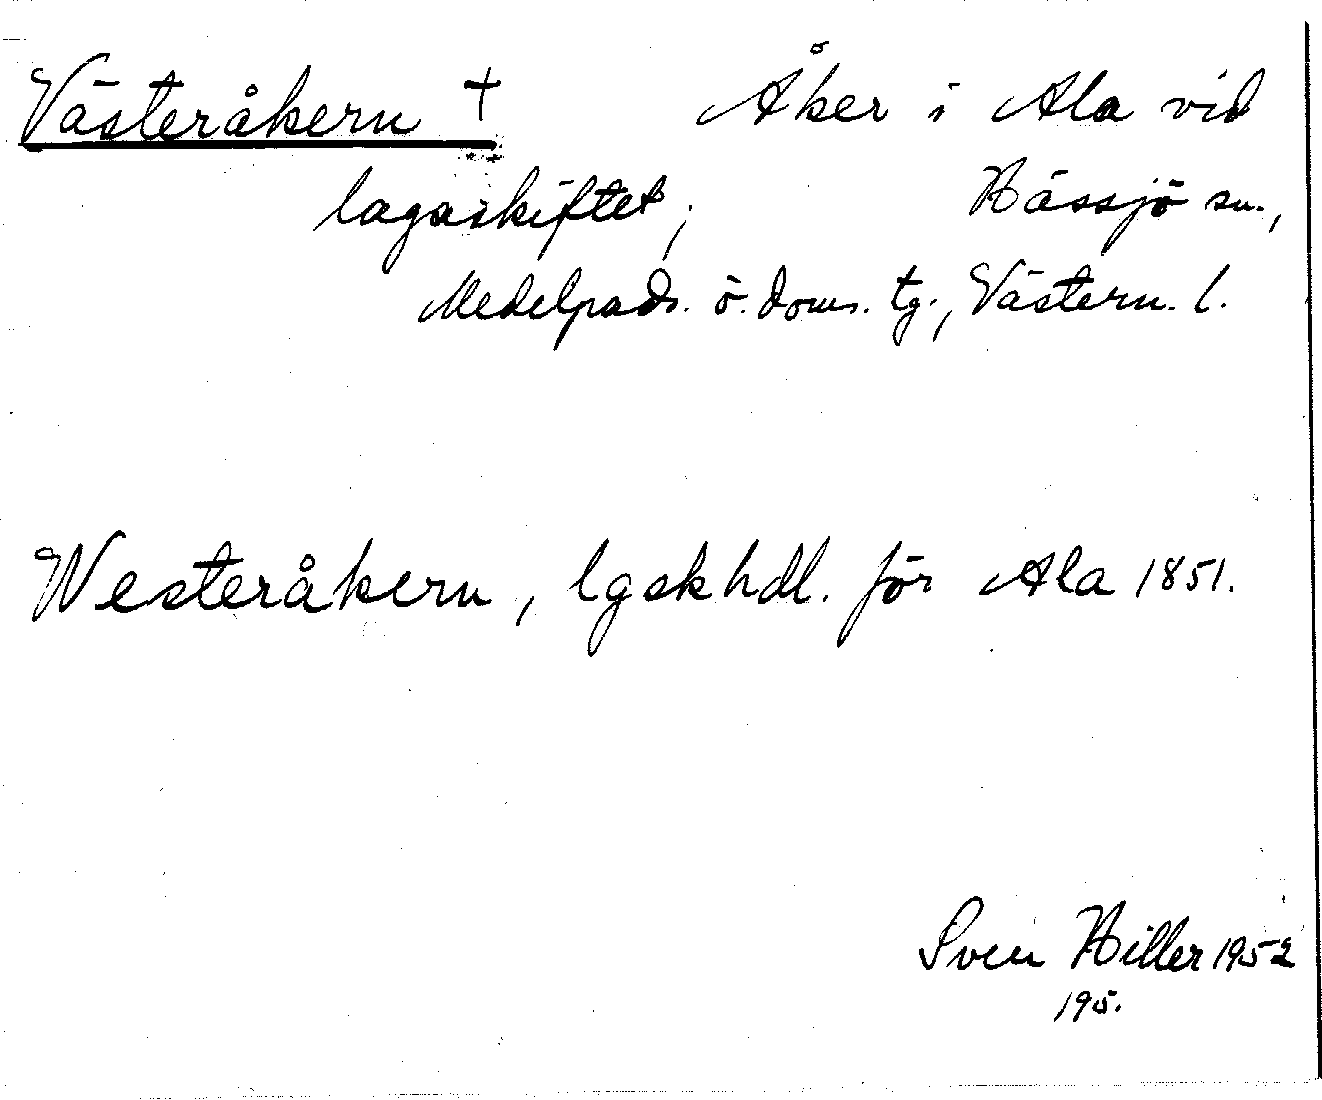 Västeråkern † Åker i Ala vid
lagaskiftet, Hässjö sn.,
Medelpads. ö. doms. tg., Västern. l.
Westeråkern, lgskhdl. för Ala 1851.
Sven Hiller 1952
195.